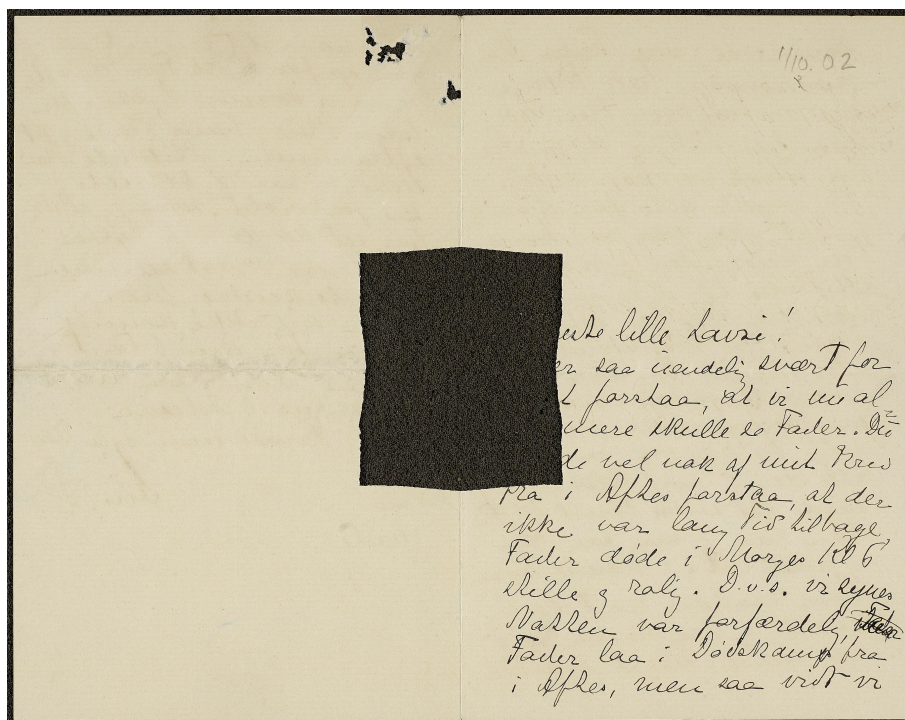 1/10. 02
lille Lavsi!
saa uendelig svært for
forstaa, at vi nu al
mere skulle se Fader. Du
vel nok af mit Brev
fra i Aftes forstaa, at der
ikke var lang Tid tilbage,
Fader døde i Morges Kl 6
stille og rolig. D.v.s. vi synes
Natten var forfærdelig,
Fader laa i Dødskamp fra
i Aftes, men saa vidt vi